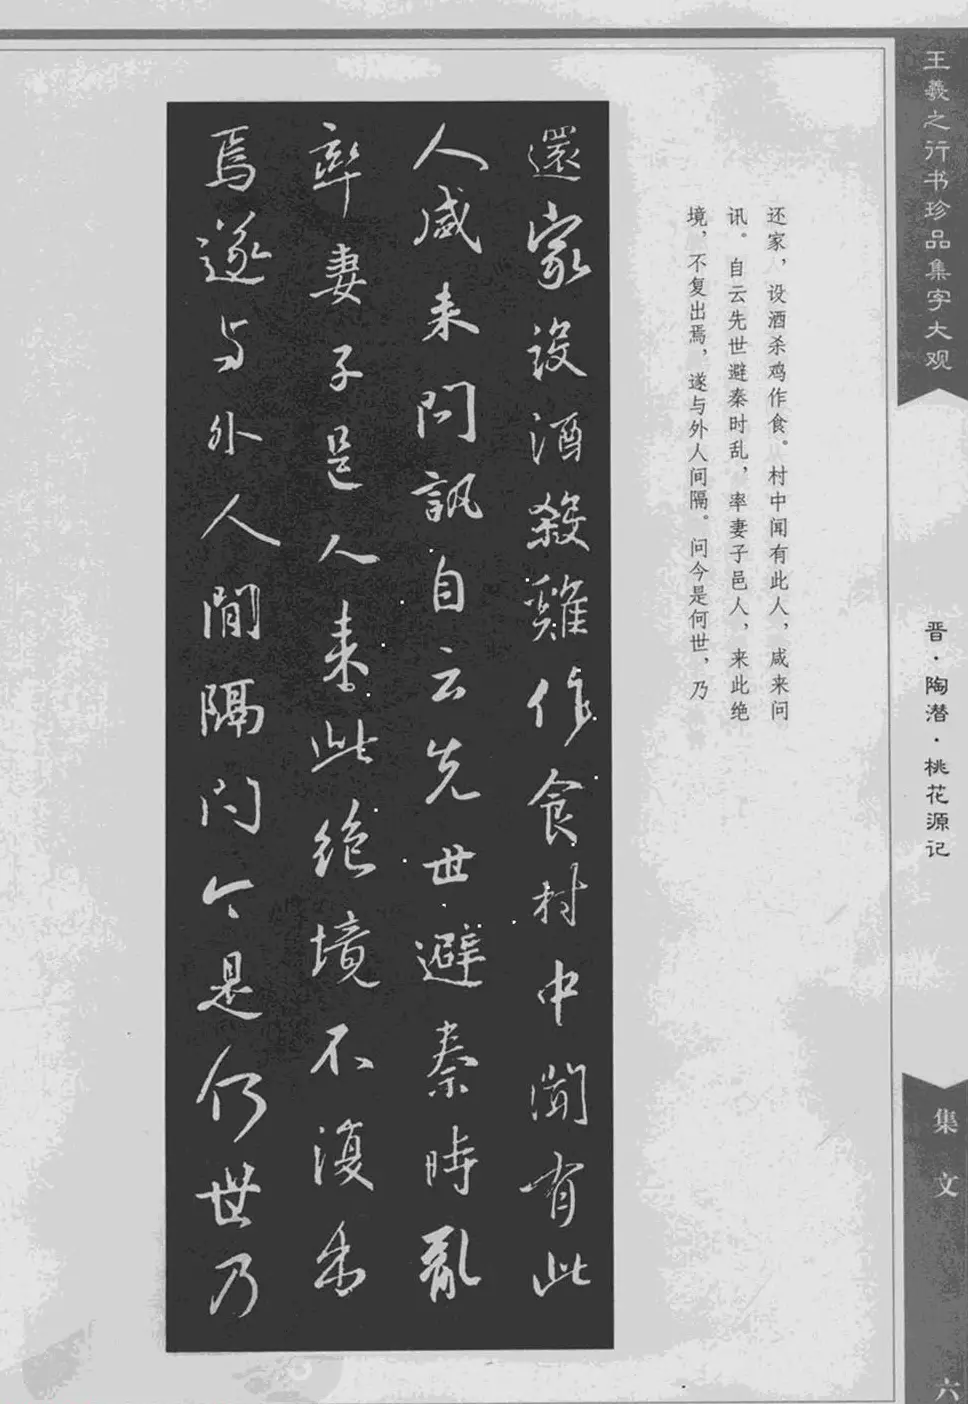 王羲之行书珍品集字大观
晋·陶潜·桃花源记
集文
六
还家，设酒杀鸡作食。村中闻有此人，咸来问
讯。自云先世避秦时乱，率妻子邑人，来此绝
境，不复出焉，遂与外人间隔。问今是何世，乃
還家設酒殺雞作食村中聞有此
人咸来問訊自云先世避秦時亂
率妻子邑人来此絶境不復出
焉遂与外人間隔問今是何世乃